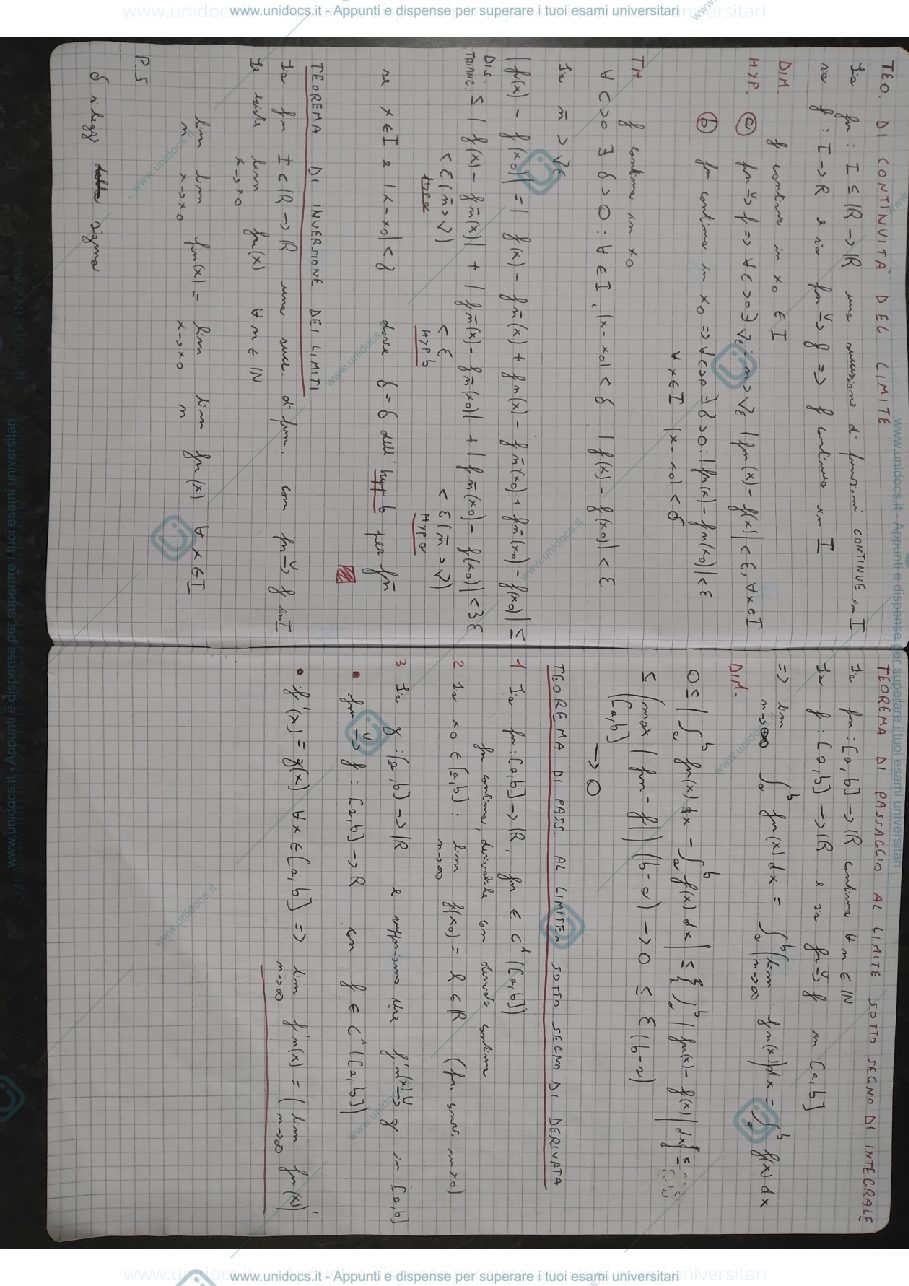 www.unidocs.it - Appunti e dispense per superare i tuoi esami universitari
TEO. DI CONTINUITÀ DEL LIMITE
Sia fn : I ⊆ ℝ → ℝ una successione di funzioni CONTINUE in I
sia f : I → R e sia fn →ᵘ f => f continua in I
DIM. f continua in x0 ∈ I
HYP. (a) fn →ᵘ f => ∀ε>0 ∃ νε : n > νε |fn(x) - f(x)| < ε, ∀x∈I
(b) fn continua in x0 => ∀ε>0 ∃ δ>0 : |fn(x) - fn(x0)| < ε
∀x∈I |x - x0| < δ
TH f continua in x0
∀ε>0 ∃ δ>0 : ∀ ∈ I, |x - x0| < δ |f(x) - f(x0)| < ε
Sia n̄ > νε
|f(x) - f(x0)| = |f(x) - fn̄(x) + fn̄(x) - fn̄(x0) + fn̄(x0) - f(x0)| ≤
DIS. TRIANG. ≤ |f(x) - fn̄(x)| + |fn̄(x) - fn̄(x0)| + |fn̄(x0) - f(x0)| < 3ε
< ε (n̄ > ν) < ε < ε (n̄ > ν)
HYP a HYP b HYP a
se x ∈ I e |x - x0| < δ dove δ = δ dell' hyp b per fn̄
TEOREMA DI INVERSIONE DEI LIMITI
Sia fn I ⊆ ℝ → ℝ una succ. di fun. con fn →ᵘ f in I
Se esiste lim fn(x) ∀ n ∈ ℕ
x→x0
lim lim fn(x) = lim lim fn(x) ∀ x ∈ I
n x→x0 x→x0 n
P.S
δ si legge sigma
TEOREMA DI PASSAGGIO AL LIMITE SOTTO SEGNO DI INTEGRALE
Sia fn : [a,b] → ℝ continua ∀ n ∈ ℕ
Sia f : [a,b] → ℝ e sia fn →ᵘ f in [a,b]
=> lim n→∞ ∫ₐᵇ fn(x) dx = ∫ₐᵇ (lim n→∞ fn(x)) dx = ∫ₐᵇ f(x) dx
DIM.
0 ≤ |∫ₐᵇ fn(x) dx - ∫ₐᵇ f(x) dx| ≤ ∫ₐᵇ |fn(x) - f(x)| dx ≤
≤ (max |fn - f|) (b-a) → 0 ≤ ε (b-a)
[a,b]
→ 0
TEOREMA DI PASS. AL LIMITE SOTTO SEGNO DI DERIVATA
1 Sia fn : [a,b] → ℝ, fn ∈ C¹([a,b])
fn continua, derivabile con derivata continua
2 Sia x0 ∈ [a,b] : lim f(x0) = l ∈ ℝ
n→∞
3 Sia g : [a,b] → ℝ e supponiamo che f'n(x) →ᵘ g in [a,b]
• fn →ᵘ f : [a,b] → R con f ∈ C¹([a,b])
• f'(x) = g(x) ∀x∈[a,b] => lim f'n(x) = (lim fn(x))'
n→∞ n→∞
www.unidocs.it - Appunti e dispense per superare i tuoi esami universitari